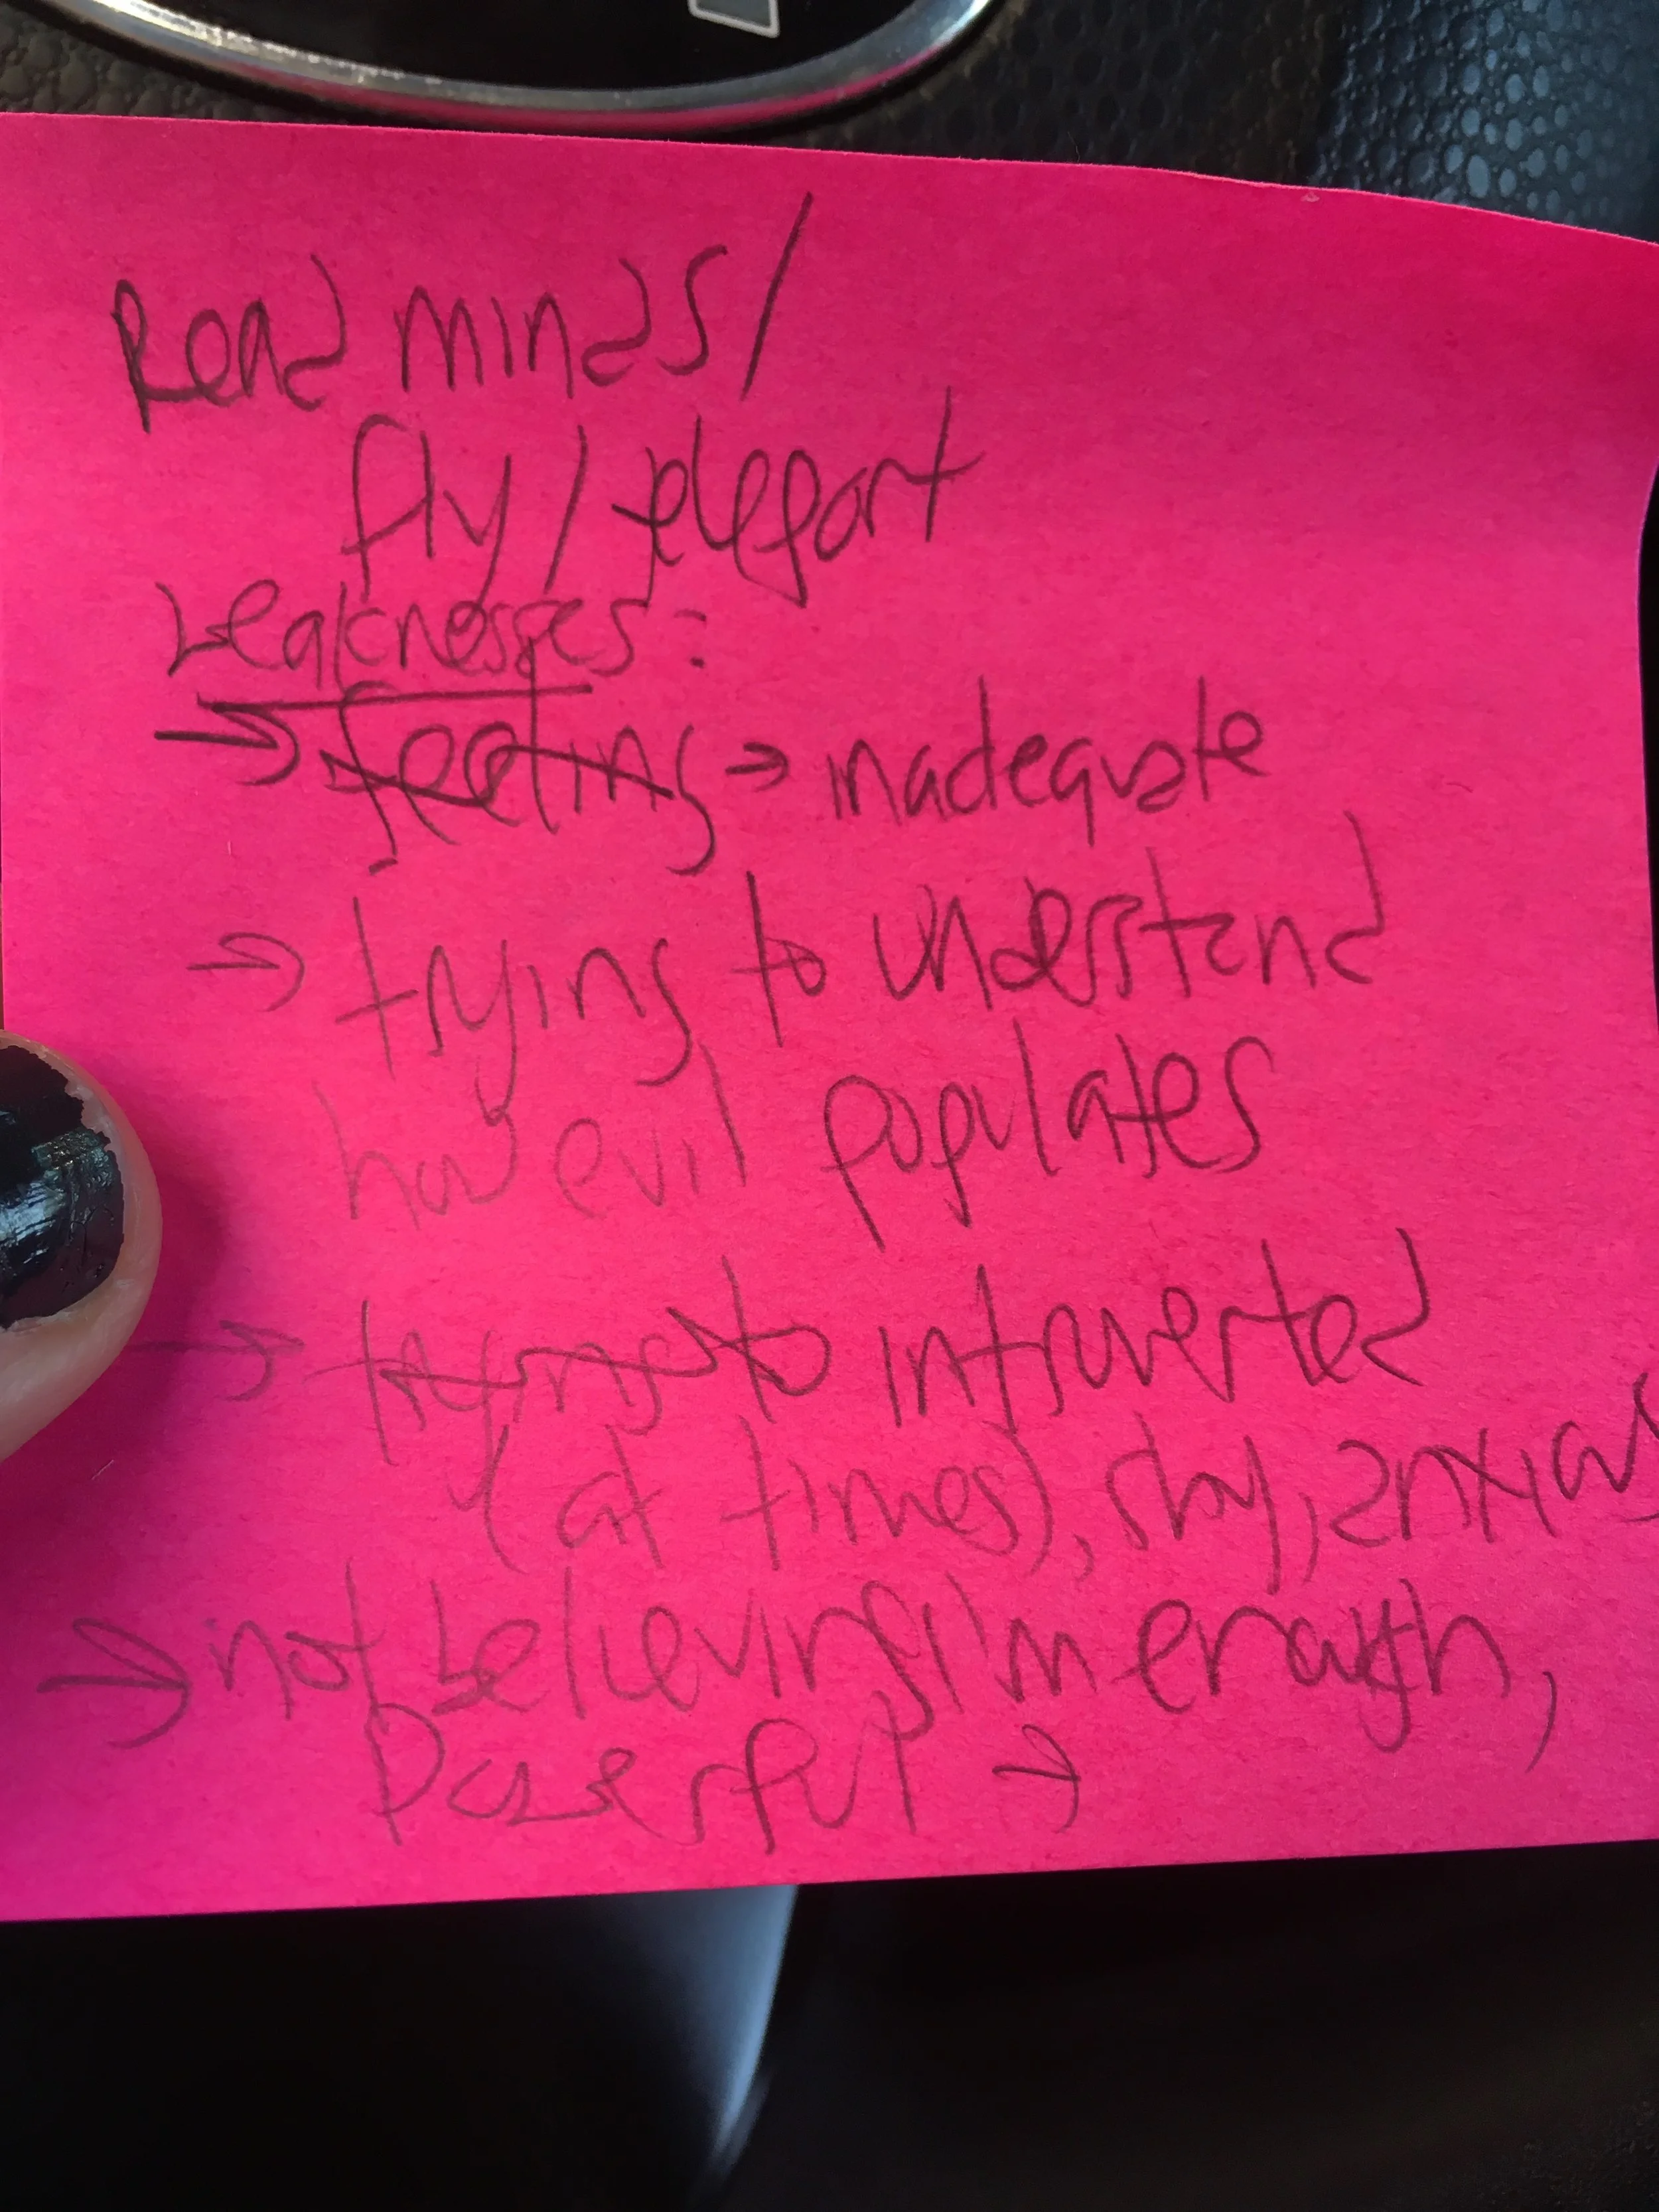 Read minds/
fly / teleport
Weaknesses:
→ feeling → inadequate
→ trying to understand
how evil populates
→ trying to introverted
(at times), shy, anxious
→ not believing I'm enough,
Powerful →